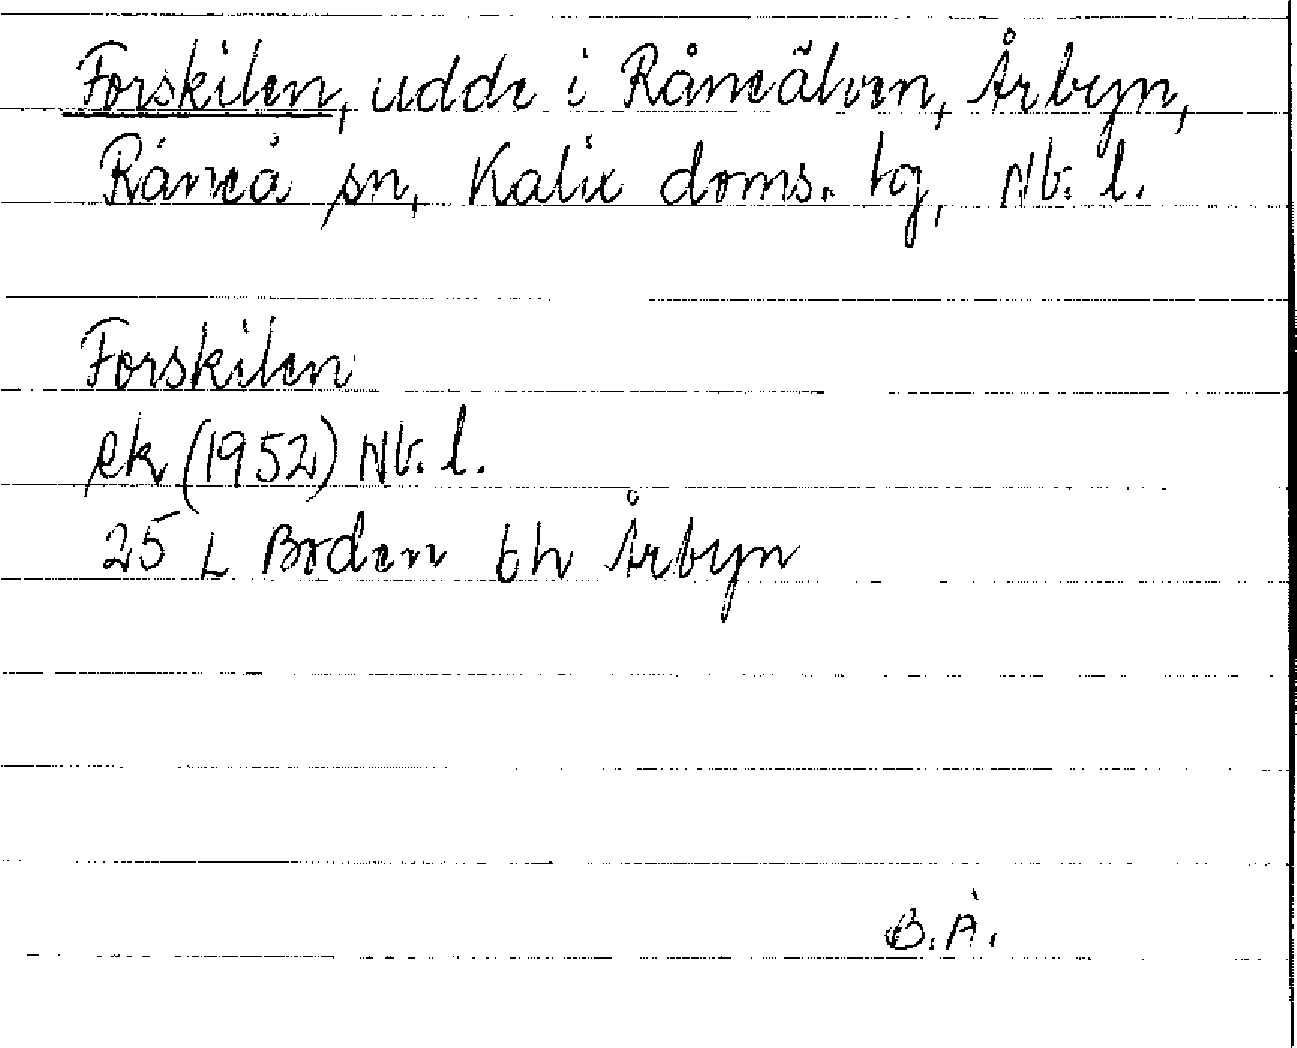 Forskilen, udde i Råneälven, Årbyn,
Råneå sn, Kalix doms. tg, Nb. l.
Forskilen
ek (1952) Nb. l.
25 L Boden bh Årbyn
B.Å.